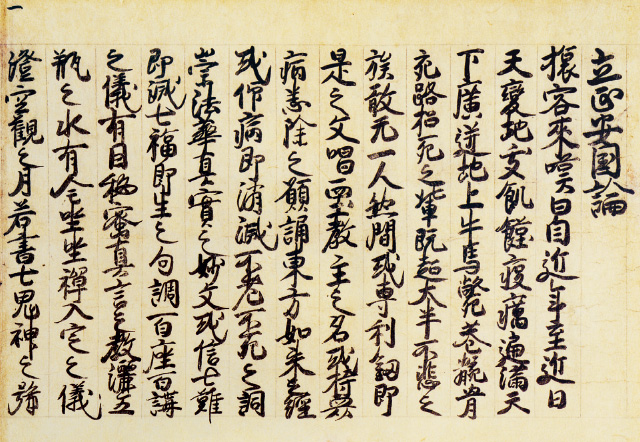 一
立正安国論
旅客來嘆曰自近年至近日
天變地夭飢饉疫癘遍滿天
下廣迸地上牛馬斃巷骸骨
充路招死之輩既超大半不悲之
族敢无一人然間或專利釼即
是之文唱西土教主之名或持衆
病悉除之願誦東方如来之經
或仰病即消滅不老不死之詞
崇法華真實之妙文或信七難
即滅七福即生之句調百座百講
之儀有因秘密真言之教灑五
瓶之水有全坐禪入定之儀
澄空觀之月若書七鬼神之号